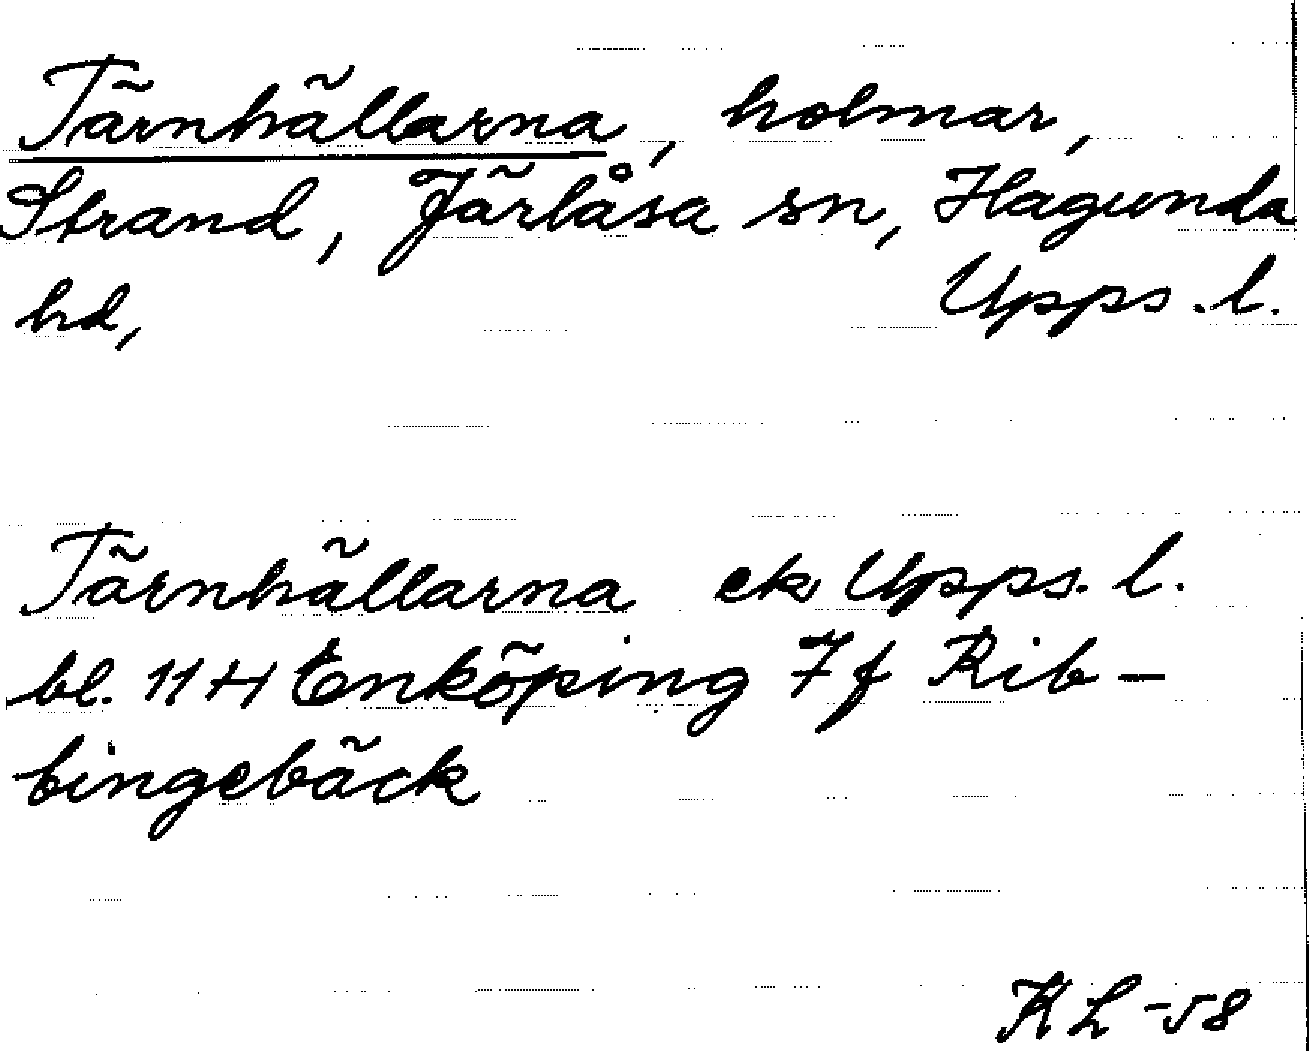 Tärnhällarna, holmar,
Strand, Järlåsa sn, Hagunda
hd, Upps. l.
Tärnhällarna ek Upps. l.
bl. 11 H Enköping 7f Rib-
bingebäck
KL -58